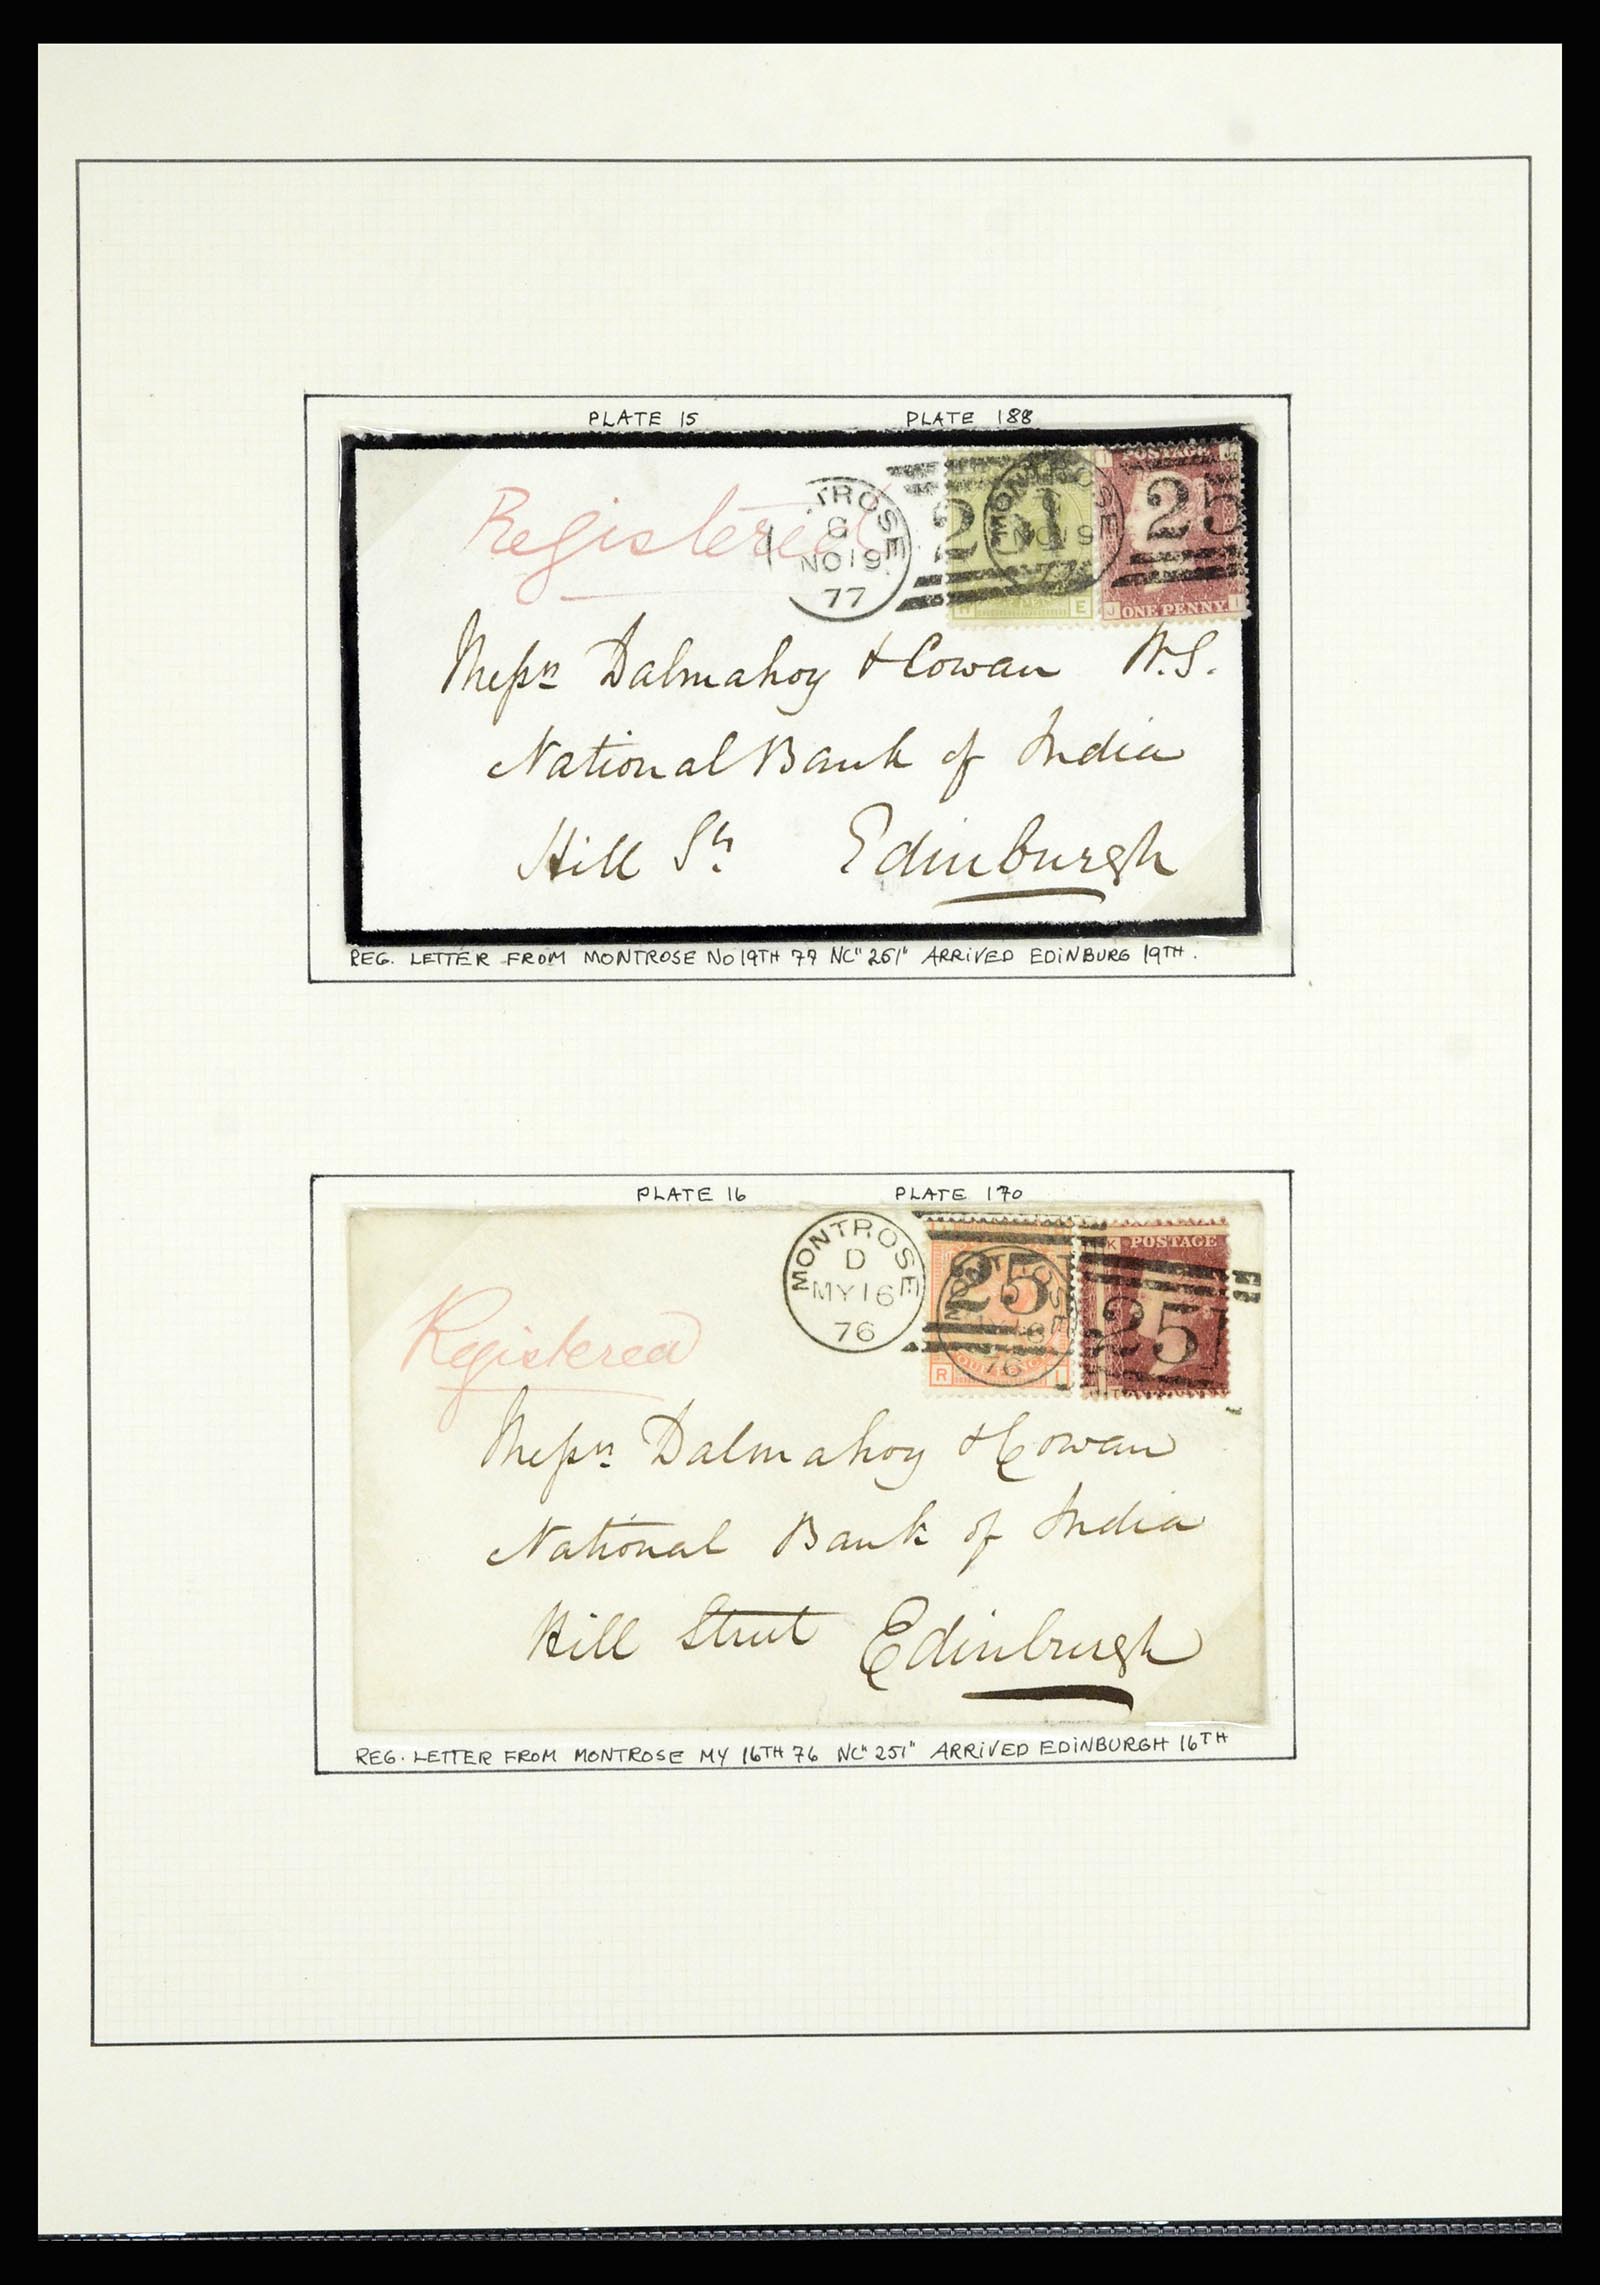 PLATE 15 PLATE 188
Registered
TROSE
NO 19
77
MONTROSE
NO 19
77
251
25
POSTAGE
E
J ONE PENNY I
Messrs Dalmahoy & Cowan W.S.
National Bank of India
Hill St. Edinburgh
REG. LETTER FROM MONTROSE NO 19TH 77 NC "251" ARRIVED EDINBURG 19TH.
PLATE 16 PLATE 170
Registered
MONTROSE
D
MY 16
76
25
76
R
K POSTAGE
25
Messrs Dalmahoy & Cowan
National Bank of India
Hill Street Edinburgh
REG. LETTER FROM MONTROSE MY 16TH 76 NC "251" ARRIVED EDINBURGH 16TH